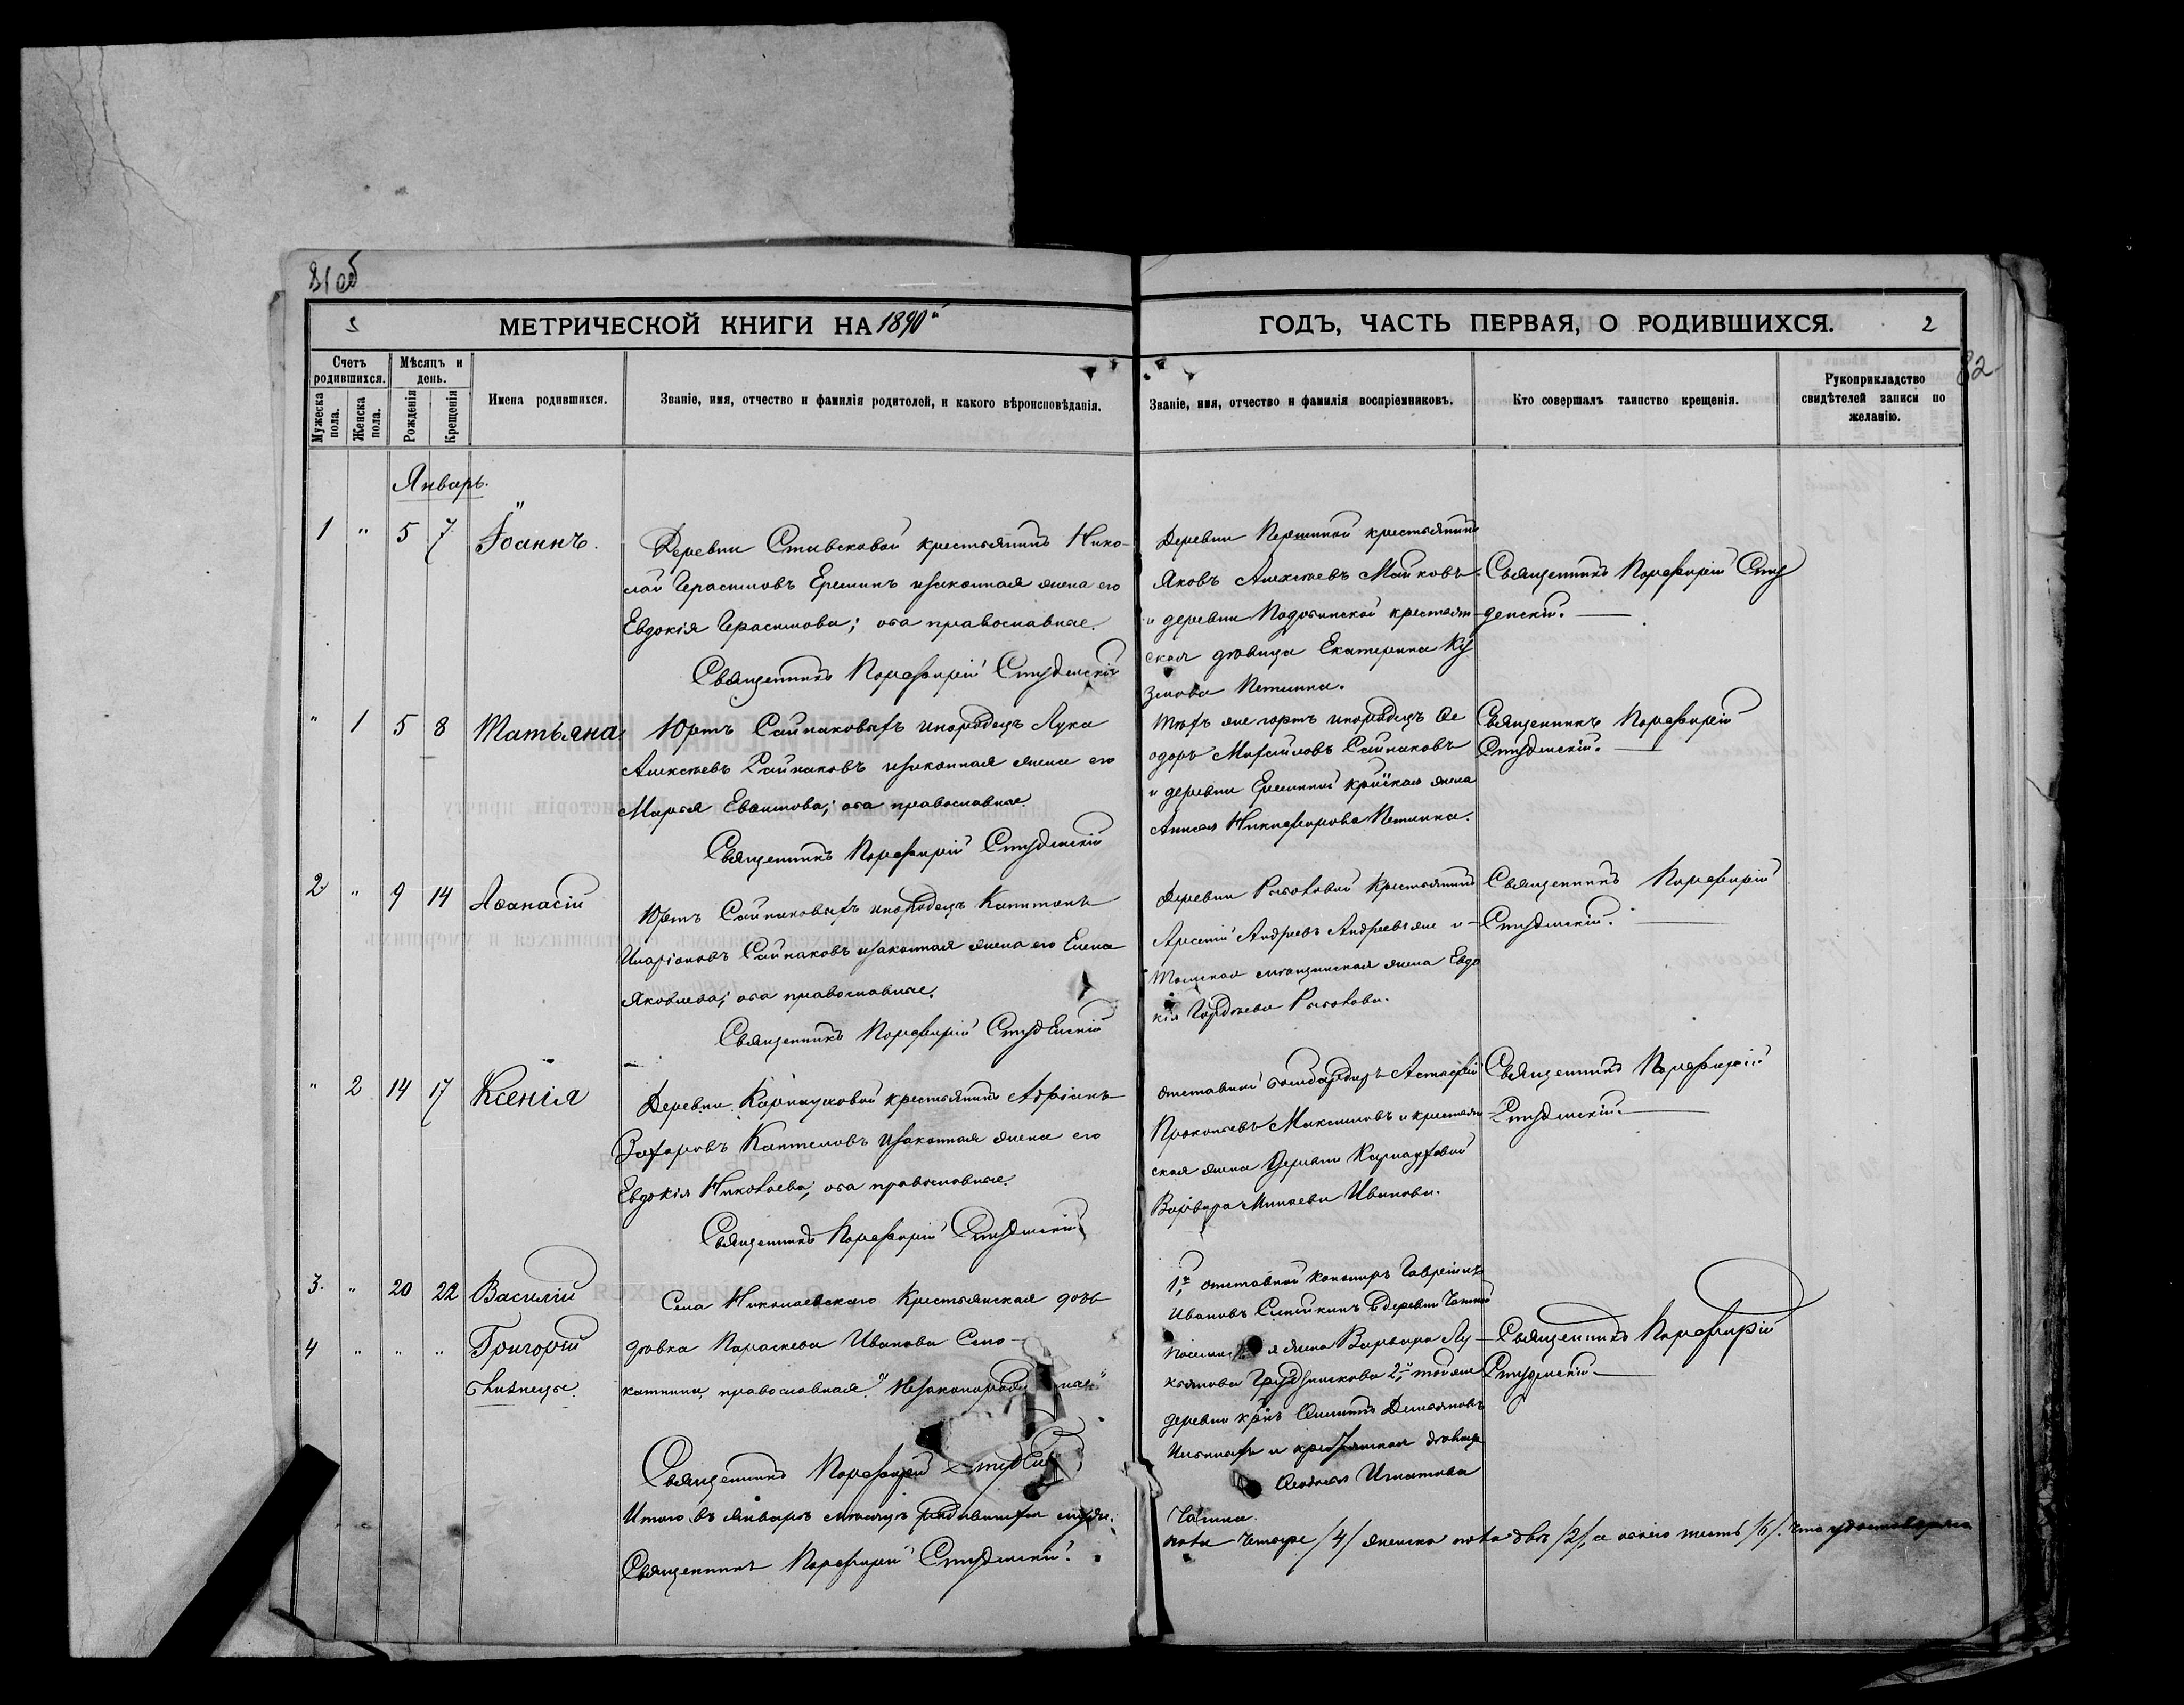 81 об
МЕТРИЧЕСКОЙ КНИГИ НА 1890й
ГОДЪ, ЧАСТЬ ПЕРВАЯ, О РОДИВШИХСЯ.
2
82
Счетъ родившихся.
Мужеска пола.
Женска пола.
Мѣсяцъ и день.
Рожденія
Крещенія
Имена родившихся.
Званіе, имя, отчество и фамилія родителей, и какого вѣроисповѣданія.
Званіе, имя, отчество и фамилія воспріемниковъ.
Кто совершалъ таинство крещенія.
Рукоприкладство
свидѣтелей записи по
желанію.
Январь.
1 " 5 7 Іоаннъ.
Деревни Ставсковой крестьянинъ Нико-
лай Герасимовъ Ереминъ и законная жена его
Евдокія Герасимова; оба православные.
Священникъ Порфирій Студенскій
Деревни крестьянинъ
Яковъ Алексѣевъ Майковъ
и деревни крестьян-
ская дѣвица Екатерина Ку
змова Петлина.
Священникъ Порфирій Сту
денскій.
" 1 5 8 Татьяна
Юртъ Сайнаковыхъ инородецъ Лука
Алексѣевъ Сайнаковъ и законная жена его
Марѳа Евѳимова; оба православные.
Священникъ Порфирій Студенскій
Тѣхъ же юртъ инородецъ Ѳе
одоръ Михайловъ Сайнаковъ
и деревни жена
Анисья Никифорова Петлина.
Священникъ Порфирій
Студенскій.
2 " 9 14 Аѳанасій
Юртъ Сайнаковыхъ инородецъ Капитонъ
Иларіоновъ Сайнаковъ и законная жена его Елена
Яковлева; оба православные.
Священникъ Порфирій Студенскій
Деревни Рыболовой крестьянинъ
Арсеній Андреевъ Андреевъ же и
Томская мѣщанская жена Евдо
кія Гордѣева Рыболова.
Священникъ Порфирій
Студенскій.
" 2 14 17 Ксенія
Деревни Карнауховой крестьянинъ Адріанъ
Захаровъ Каптеловъ и законная жена его
Евдокія Николаева; оба православные.
Священникъ Порфирій Студенскій
Отставной бомбардиръ Астафій
Прокопьевъ Максимовъ и крестьян-
ская жена деревни Карнауховой
Варвара Минаева Иванова.
Священникъ Порфирій
Студенскій.
3. " 20 22 Василій
4 " " " Григорій
близнецы.
Села Николаевскаго крестьянская дѣв-
Параскева Иванова
православная.
Священникъ Порфирій
1й, отставной канониръ Гавріилъ
Ивановъ и деревни
жена Варвара Лу-
кьянова 2й той же
деревни
и крестьянская дѣвица
Игнатова
Чатина.
Священникъ Порфирій
Студенскій
Итого въ январѣ мѣсяцѣ родившихся мужеск.
пола четыре /4/ женска пола двѣ /2/, а обоего шесть /6/. Что удостовѣряю
Священникъ Порфирій Студенскій.